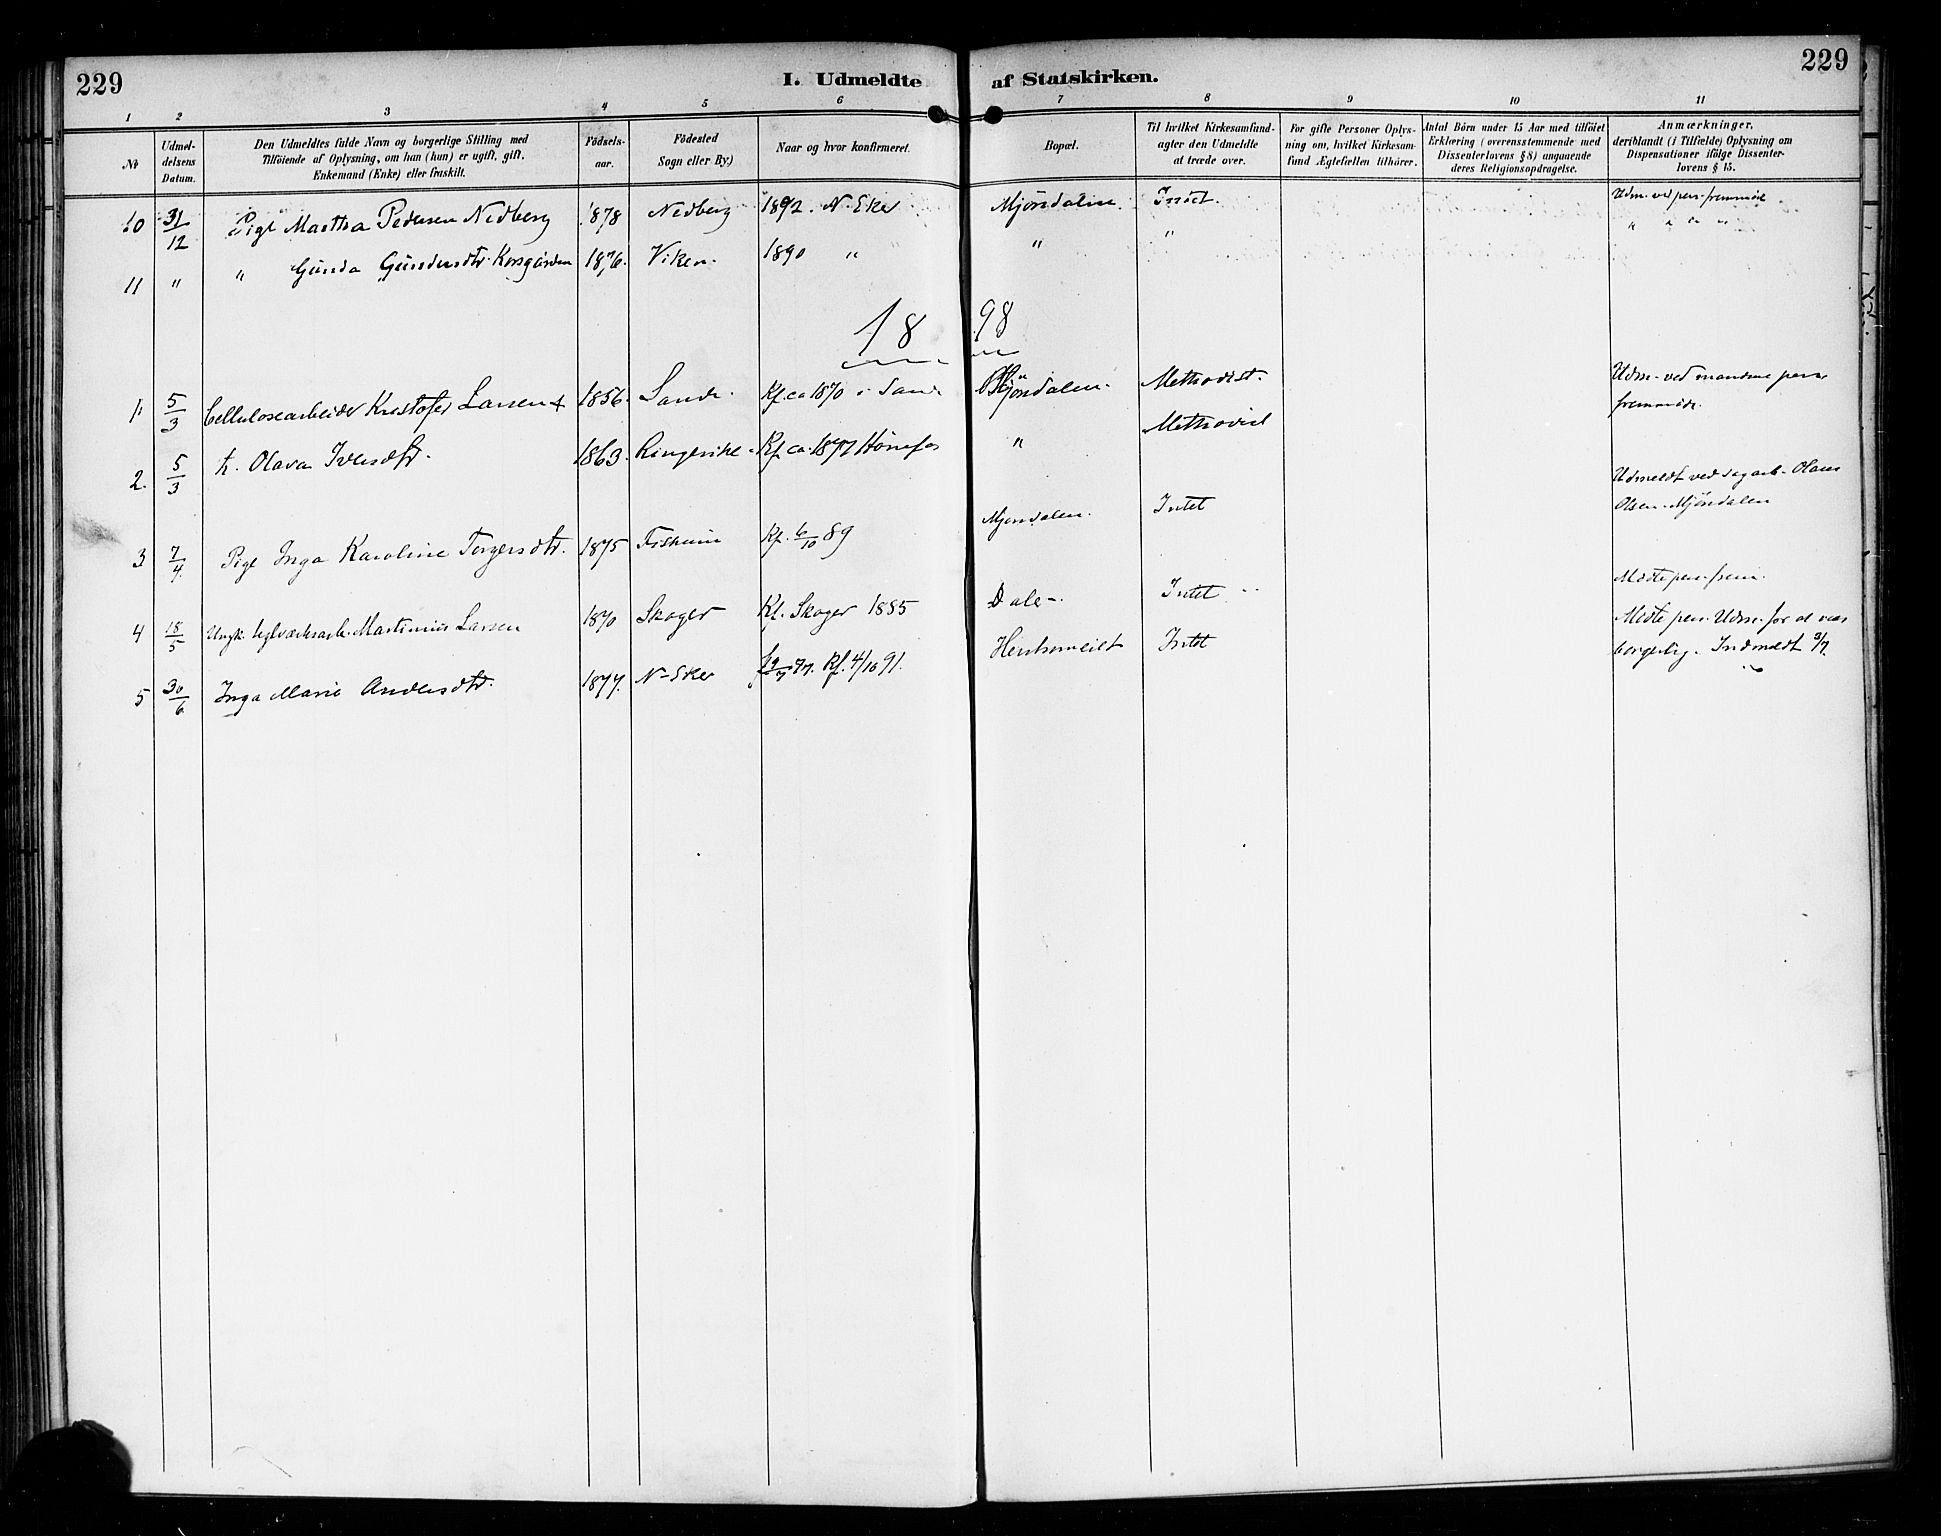 229 I. Udmeldte af Statskirken. 229
1 2 3 4 5 6 7 8 9 10 11
No Udmeldelsens Datum. Den Udmeldtes fulde Navn og borgerlige Stilling med Tilföiende af Oplysning, om han (hun) er ugift, gift, Enkemand (Enke) eller fraskilt. Födselsaar. Födested Sogn eller By.) Naar og hvor konfirmeret. Bopæl. Til hvilket Kirkesamfund agter den Udmeldte at træde over. For gifte Personer Oplysning om, hvilket Kirkesamfund Ægtefællen tilhörer. Antal Börn under 15 Aar med tilföiet Erklæring (overensstemmende med Dissenterlovens § 8) angaaende deres Religionsopdragelse. Anmærkninger, deriblandt (i Tilfælde) Oplysning om Dispensationer ifölge Dissenterlovens § 15.
10 31/12 Pige Martha Pedersen Nedberg 1878 Nedberg 1892. N. Eker Mjöndalen. Intet. Udm. ved pers. fremmöde
11 " " Gunda Gundersdtr. Korsgården 1876. Viken. 1890 " " " " " " "
1898
1. 5/3 Cellulosearbeider Kristofer Larsen & 1856. Sande. Kf. ca 1870 i Sande Mjöndalen. Methodist. Udm. ved mandens pers. fremmöde.
2. 5/3 h. Olava Iversdtr. 1863. Ringerike. Kf. ca. 1877 Hönefos " Methodist
3 7/4. Pige Inga Karoline Torgersdtr. 1875 Fiskum Kf. 6/10 89 Mjöndalen. Intet Udmeldt ved sagarb. Olaus Olsen. Mjöndalen
4 18/5 Ungk. Martinius Larsen 1870 Skoger Kf. Skoger 1885 Dale. Intet Mödte pers. frem.
5 30/6 Inga Marie Andersdtr. 1877. N-Eker Kf. 4/10 91. Intet Mödte pers. Udm. for at borgerlig. Indmeldt 9/7.